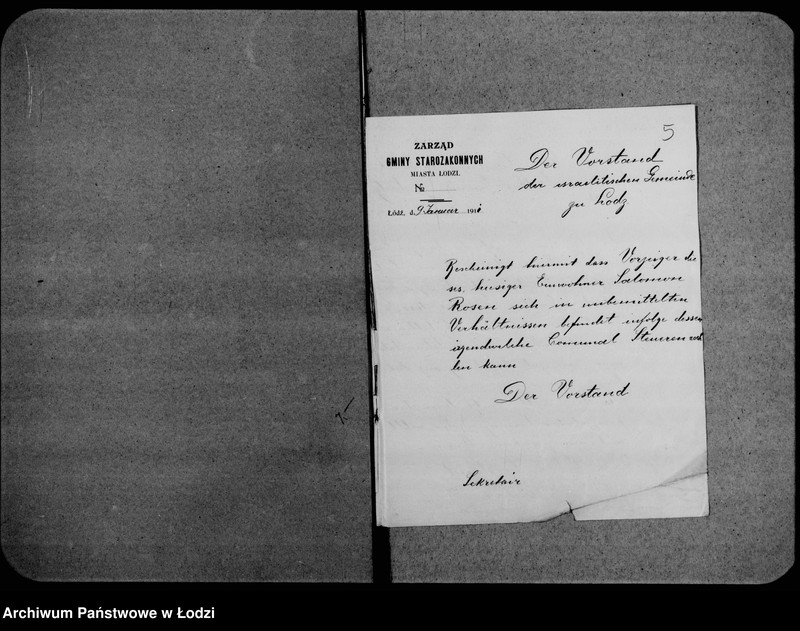 5
ZARZĄD
GMINY STAROZAKONNYCH
MIASTA ŁODZI.
№
Łódź, d. 9 Januar 191
Der Vorstand
der israelitischen Gemeinde
zu Lodz
Bescheinigt hiermit dass Vorzeiger die
ses, hiesiger Einwohner Salomon
Rosen sich in unbemittelten
Verhältnissen befindet infolge dessen
irgendwelche Comunal Steueren
len kann
Der Vorstand
Sekretair
Archiwum Państwowe w Łodzi